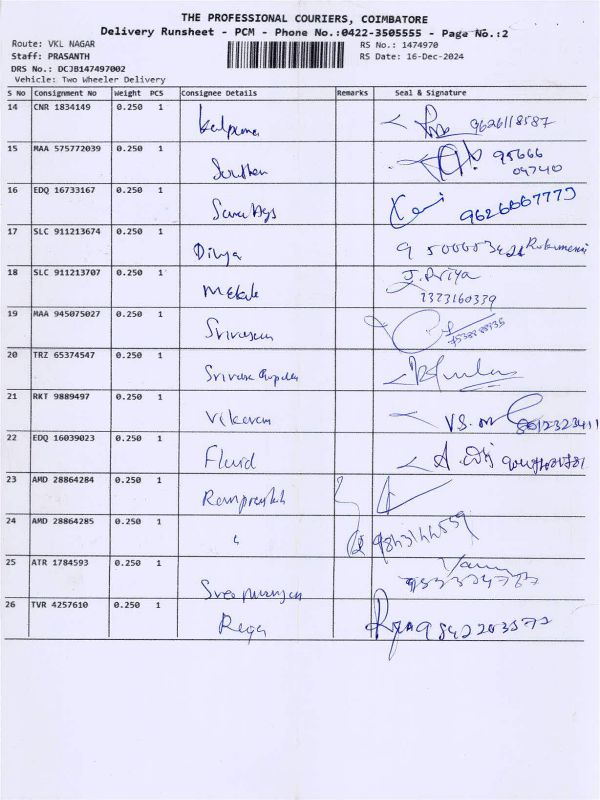 THE PROFESSIONAL COURIERS, COIMBATORE
Delivery Runsheet - PCM - Phone No.:0422-3505555 - Page No.:2
Route: VKL NAGAR RS No.: 1474970
Staff: PRASANTH RS Date: 16-Dec-2024
DRS No.: DCJB147497002
Vehicle: Two Wheeler Delivery
S No Consignment No Weight PCS Consignee Details Remarks Seal & Signature
14 CNR 1834149 0.250 1 Kalpana 9626118587
15 MAA 575772039 0.250 1 95666
04740
16 EDQ 16733167 0.250 1 9626667779
17 SLC 911213674 0.250 1 Divya Rukumani
18 SLC 911213707 0.250 1 J. Priya
7373160339
19 MAA 945075027 0.250 1
20 TRZ 65374547 0.250 1
21 RKT 9889497 0.250 1 Vikaram V.S.
22 EDQ 16039023 0.250 1 Fluid
23 AMD 28864284 0.250 1
24 AMD 28864285 0.250 1 " 9843144559
25 ATR 1784593 0.250 1
26 TVR 4257610 0.250 1 9842203577